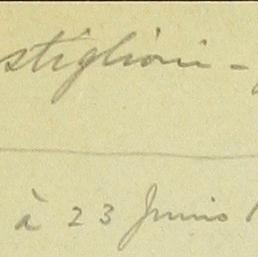 stiglioni -
à 23 Junio